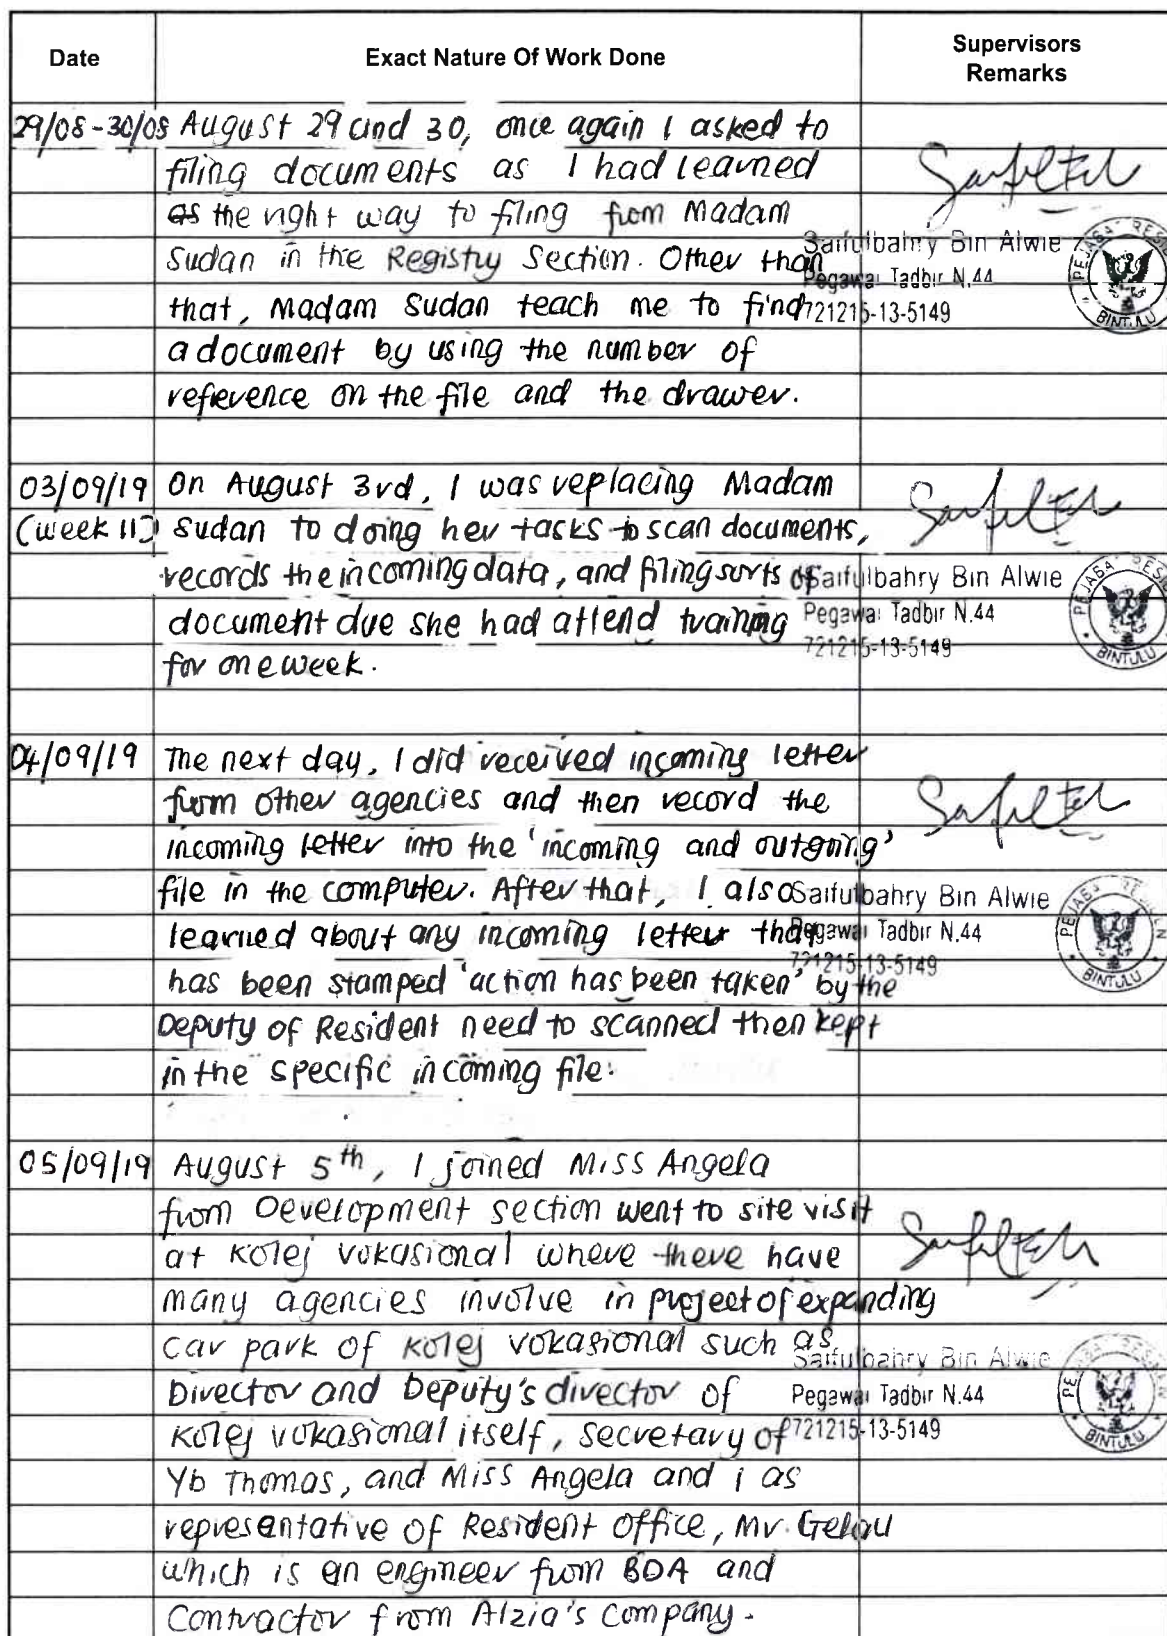 Date
Exact Nature Of Work Done
Supervisors
Remarks
29/08-30/08 August 29 and 30, once again I asked to
filing documents as I had learned
as the right way to filing from Madam
Sudan in the Registry Section. Other than
that, Madam Sudan teach me to find
a document by using the number of
reference on the file and the drawer.
Saifulbahry Bin Alwie
Pegawai Tadbir N.44
721215-13-5149
PEJABAT RESI
BINTULU
03/09/19 On August 3rd, I was replacing Madam
(week 11) Sudan to doing her tasks to scan documents,
records the incoming data, and filing sorts of
document due she had attend training
for one week.
Saifulbahry Bin Alwie
Pegawai Tadbir N.44
721215-13-5149
PEJABA RESI
BINTULU
04/09/19 The next day, I did received incoming letter
from other agencies and then record the
incoming letter into the 'incoming and outgoing'
file in the computer. After that, I also
learned about any incoming letter that
has been stamped 'action has been taken' by the
Deputy of Resident need to scanned then kept
in the specific incoming file.
Saifulbahry Bin Alwie
Pegawai Tadbir N.44
721215-13-5149
BINTULU
05/09/19 August 5th, I joined Miss Angela
from Development section went to site visit
at Kolej vokasional where there have
many agencies involve in project of expanding
car park of Kolej vokasional such as
Director and Deputy's director of
Kolej vokasional itself, secretary of
Yb Thomas, and Miss Angela and i as
representative of Resident Office, Mr. Gelau
which is an engineer from BDA and
Contractor from Alzia's company.
Saifulbahry Bin Alwie
Pegawai Tadbir N.44
721215-13-5149
BINTULU